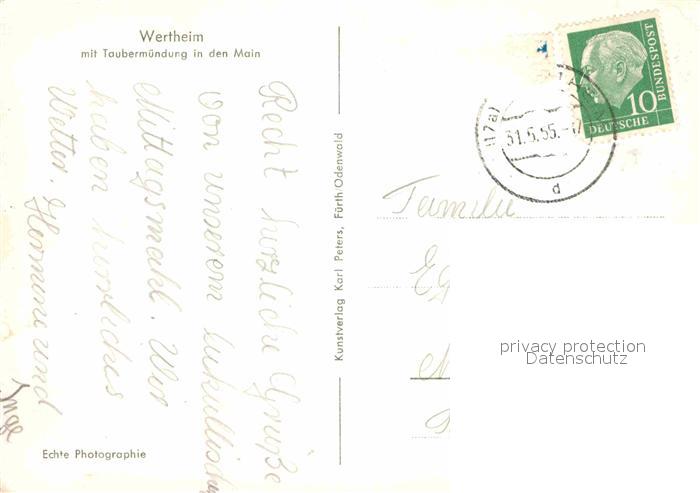 Wertheim
mit Taubermündung in den Main
Recht herzliche Grüße
von unserem lukullischen
Mittagsmahl. Wir
haben herrliches
Wetter. Hermine und
Inge
Echte Photographie
Kunstverlag Karl Peters, Fürth/Odenwald
10
DEUTSCHE
BUNDESPOST
(17a)
31.5.55.-17
d
Familie
privacy protection
Datenschutz